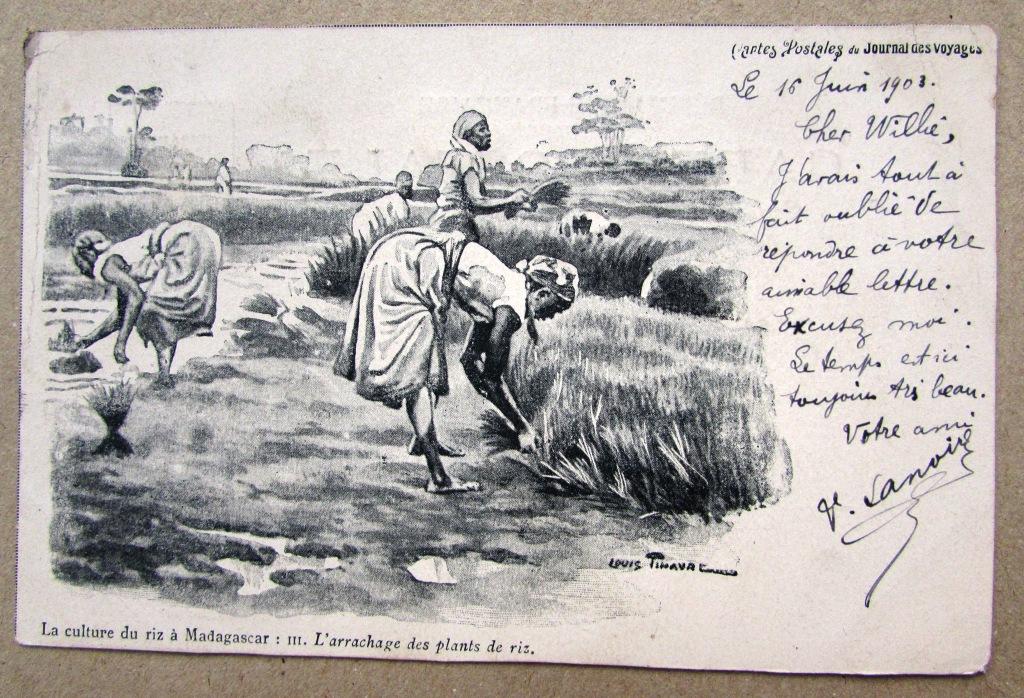 Cartes Postales du Journal des Voyages
Le 16 Juin 1903.
Cher Willie,
J'avais tout à
fait oublié de
répondre à votre
aimable lettre.
Excusez moi.
Le temps est ici
toujours très beau.
Votre ami
V. Lanoir
Louis Tinayre
La culture du riz à Madagascar : III. L'arrachage des plants de riz.